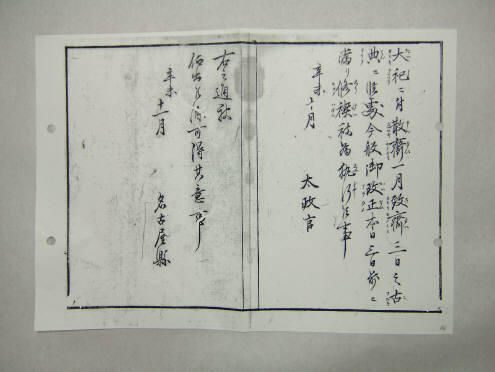 大祀ニ付散齋一月致齋三日之古
典ニ候處今般御改正本日三日前ヨリ
修禊
被為執行候事
辛未十一月
太政官
右之通被
仰出候條可得其意事
辛未
十一月
名古屋縣